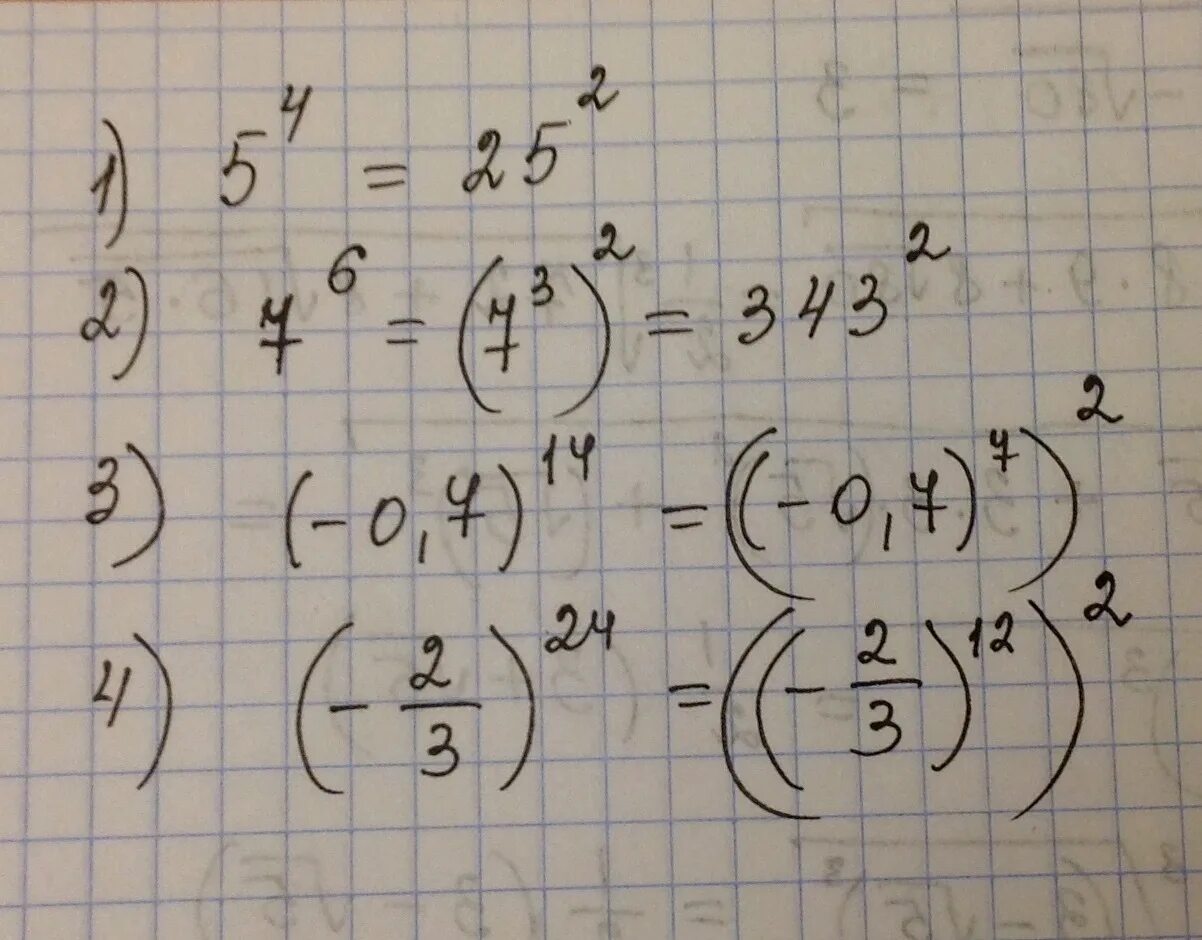 1) 5^4 = 25^2
2) 7^6 = (7^3)^2 = 343^2
3) (-0,7)^14 = ((-0,7)^7)^2
4) (-2/3)^24 = ((-2/3)^12)^2